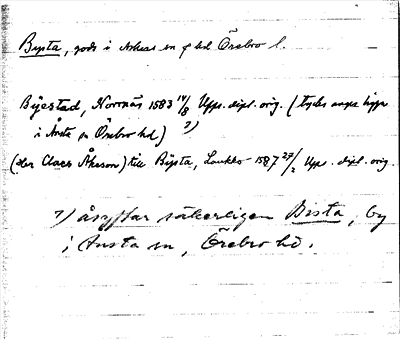 Bysta, gods i Askers sn o hd Örebro l.
Byestad, Norrnäs 1583 14/8 Upps. dipl. orig. (tycks anges ligga
i Ånsta sn Örebro hd) ?)
(der Claes Åkesson) till Bijsta, Laukko 1587 27/2 Upps. dipl. orig.
?) åsyftar säkerligen Bista, by
i Ånsta sn, Örebro hd.